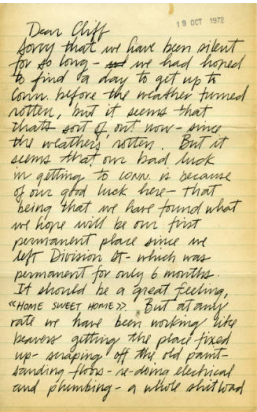 19 OCT 1972
Dear Cliff
Sorry that we have been silent
for so long - we had hoped
to find a day to get up to
Conn. before the weather turned
rotten, but it seems that
thats sort of out now - since
the weathers rotten. But it
seems that our bad luck
in getting to Conn. is because
of our good luck here - that
being that we have found what
we hope will be our first
permanent place since we
left Division St - which was
permanent for only 6 months.
It should be a great feeling,
«HOME SWEET HOME». But at any
rate we have been working like
beavers getting the place fixed
up - scraping off the old paint -
sanding floors - re-doing electrical
and plumbing - a whole shitload